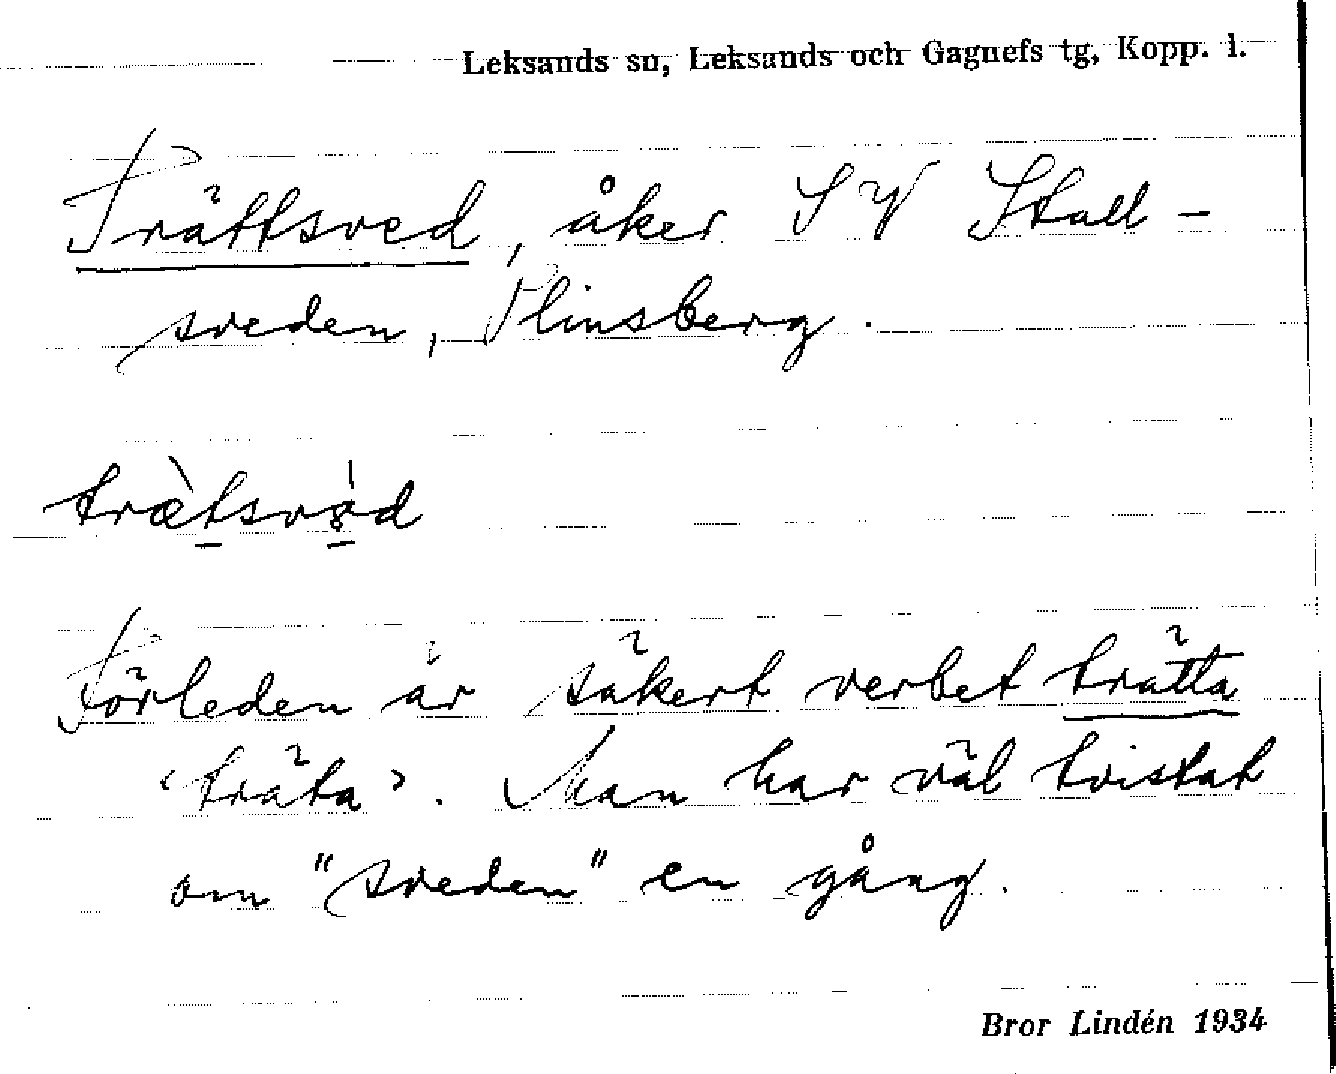 Leksands sn, Leksands och Gagnefs tg, Kopp. l.
Trättsved, åker SV Stall-
sveden, Plinsberg.
Förleden är säkert verbet trätta
‘träta’. Man har väl tvistat
om "sveden" en gång.
Bror Lindén 1934